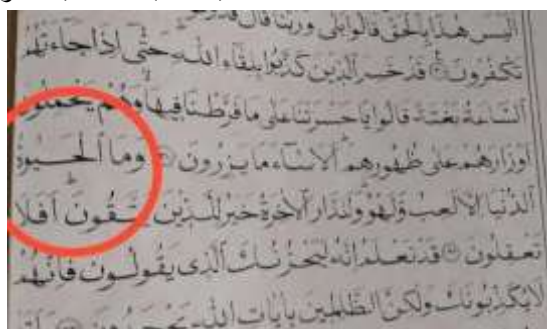 أليس هذا بالحق قالوا بلى وربنا قال
تكفرون قد خسر الذين كذبوا بلقاء الله حتى إذا جاءتهم
الساعة بغتة قالوا يا حسرتنا على ما فرطنا فيها وهم يحملون
أوزارهم على ظهورهم ألا ساء ما يزرون وما الحيوة
الدنيا إلا لعب ولهو وللدار الآخرة خير للذين يتقون أفلا
تعقلون قد نعلم إنه ليحزنك الذي يقولون فإنهم
لا يكذبونك ولكن الظالمين بآيات الله يجحدون